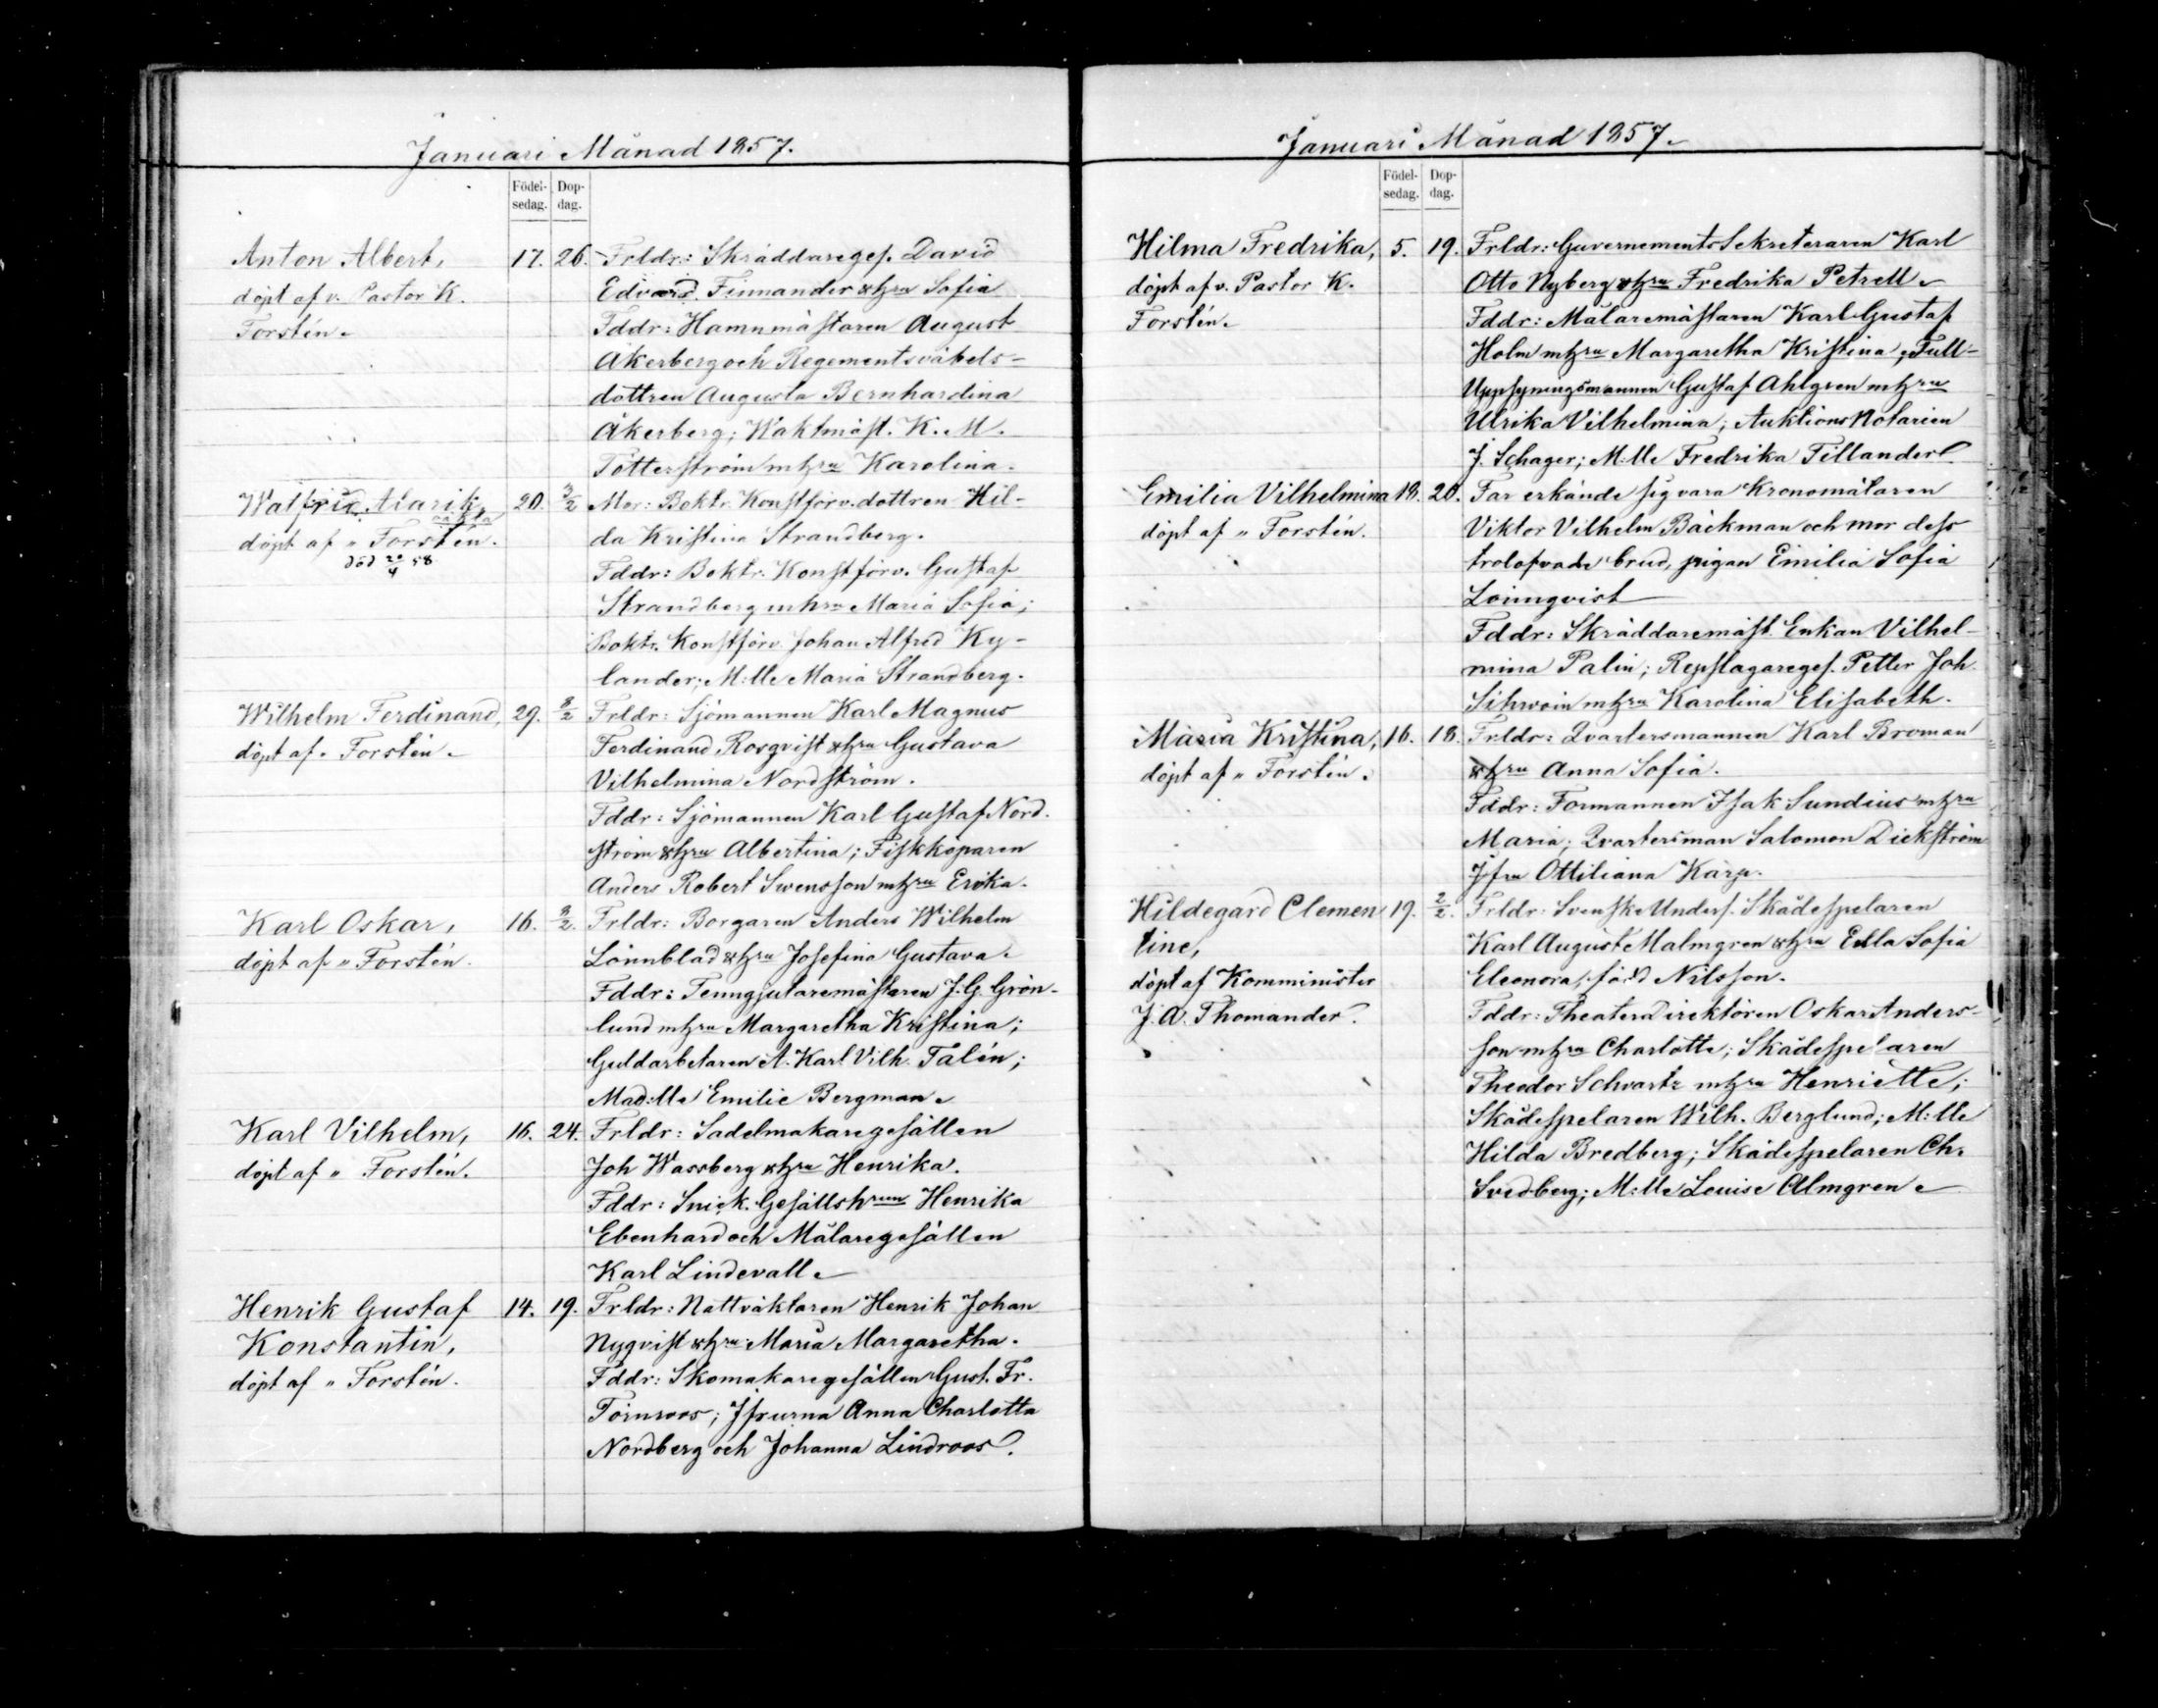 Januari Månad 1857.
Födel-
sedag.
Dop-
dag.
Anton Albert,
döpt af v. Pastor K.
Forstén.
17. 26.
Frldr: Skräddareges. David
Edvard Finnander & hru Sofia
Fddr: Hamnmästaren August
Åkerberg och Regementsväbels-
dottren Augusta Bernhardina
Åkerberg; Waktmäst. K. M.
Totterström m hru Karolina.
Walfrid Alarik,
oäkta
döpt af " Forstén.
död 20/4 58
20. 3/2
Mor: Boktr. Konstförv. dottren Hil-
da Kristina Strandberg.
Fddr: Boktr. Konstförv. Gustaf
Strandberg m hru Maria Sofia;
Boktr. Konstförv. Johan Alfred Ky-
lander; M:lle Maria Strandberg.
Wilhelm Ferdinand,
döpt af " Forstén.
29. 8/2
Frldr: Sjömannen Karl Magnus
Ferdinand Rosqvist & hru Gustava
Vilhelmina Nordström.
Fddr: Sjömannen Karl Gustaf Nord-
ström & hru Albertina; Fiskköparen
Anders Robert Swensson m hru Erika.
Karl Oskar,
döpt af " Forstén.
16. 9/2.
Frldr: Borgaren Anders Wilhelm
Lönnblad & hru Josefina Gustava.
Fddr: Tenngjutaremästaren J. G. Grön-
lund m hru Margaretha Kristina;
Guldarbetaren A. Karl Vilh. Talén;
Mad:lle Emilie Bergman.
Karl Vilhelm,
döpt af " Forstén.
16. 24.
Frldr: Sadelmakaregesällen
Joh Wassberg & hru Henrika.
Fddr: Snick. Gesällsh run Henrika
Ebenhard och Målaregesällen
Karl Lindevall.
Henrik Gustaf
Konstantin,
döpt af " Forstén.
14. 19.
Frldr: Nattväktaren Henrik Johan
Nyqvist & hru Maria Margaretha.
Fddr: Skomakaregesällen Gust. Fr.
Törnroos; Jfrurna Anna Charlotta
Nordberg och Johanna Lindroos.
Januari Månad 1857.
Födel-
sedag.
Dop-
dag.
Hilma Fredrika,
döpt af v. Pastor K.
Forstén.
5. 19.
Frldr: Guvernements Sekreteraren Karl
Otto Nyberg & hru Fredrika Petrell.
Fddr: Målaremästaren Karl Gustaf
Holm m hru Margaretha Kristina; Tull-
Uppsyningsmannen Gustaf Ahlgren m hru
Ulrika Vilhelmina; Auktions Notarien
J. Schager; M:lle Fredrika Tillander.
Emilia Vilhelmina
döpt af " Forstén.
18. 20.
Far erkände sig vara Kronomålaren
Viktor Vilhelm Bäckman och mor dess
trolofvade brud, pigan Emilia Sofia
Lönnqvist
Fddr: Skräddaremäst. Enkan Vilhel-
mina Palin; Repslagareges. Petter Joh.
Sihvoin m hru Karolina Elisabeth.
Maria Kristina,
döpt af " Forstén.
16. 18.
Frldr: Qvartersmannen Karl Broman
& hru Anna Sofia.
Fddr: Formannen Isak Sundius m hru
Maria; Qvartersman Salomon Dickström
Jfru Ottiliana Karp.
Hildegard Clemen
tine,
döpt af Komminister
J. A. Thomander.
19. 2/2.
Frldr: Svenske Unders. Skådespelaren
Karl August Malmgren & hru Edla Sofia
Eleonora, född Nilsson.
Fddr: Theater Direktören Oskar Anders-
son m hru Charlotte; Skådespelaren
Theodor Schvartz m hru Henriette;
Skådespelaren Wilh. Berglund; M:lle
Hilda Bredberg; Skådespelaren Ch.
Svedberg; M:lle Louise Almgren.